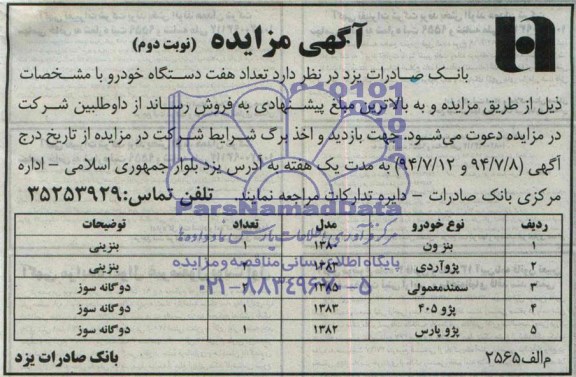 آگهی مزایده (نوبت دوم)
بانک صادرات یزد در نظر دارد تعداد هفت دستگاه خودرو با مشخصات
ذیل از طریق مزایده و به بالاترین مبلغ پیشنهادی به فروش رساند از داوطلبین شرکت
در مزایده دعوت می‌شود. جهت بازدید و اخذ برگ شرایط شرکت در مزایده از تاریخ درج
آگهی (۹۴/۷/۸ و ۹۴/۷/۱۲) به مدت یک هفته به آدرس یزد بلوار جمهوری اسلامی - اداره
مرکزی بانک صادرات - دایره تدارکات مراجعه نمایند. تلفن تماس: ۳۵۲۵۳۹۲۹
ParsNamadData
ردیف نوع خودرو مدل تعداد توضیحات
۱ بنز ون ۱۳۸۰ ۱ بنزینی
۲ پژوآردی ۱۳۸۲ بنزینی
۳ سمندمعمولی ۱۳۸۵ دوگانه سوز
۴ پژو ۴۰۵ ۱۳۸۳ ۱ دوگانه سوز
۵ پژو پارس ۱۳۸۲ ۱ دوگانه سوز
مرکز فرآوری اطلاعات پارس نماد داده‌ها
پایگاه اطلاع رسانی مناقصه و مزایده
۰۲۱-۸۸۳۴۹۶۷۰-۵
م‌الف ۲۵۶۵ بانک صادرات یزد